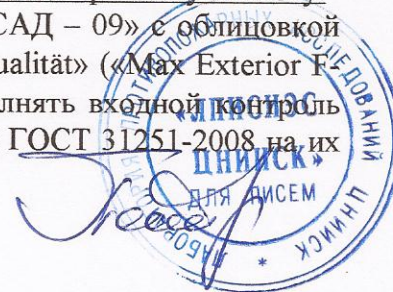 САД – 09» с облицовкой
ualität» («Max Exterior F-
олнять входной контроль
ГОСТ 31251-2008 на их
ПРОТИВОПОЖАРНЫХ ИССЛЕДОВАНИЙ ЦНИИСК
«ЛПИСИЭС
ЦНИИСК»
ДЛЯ ПИСЕМ